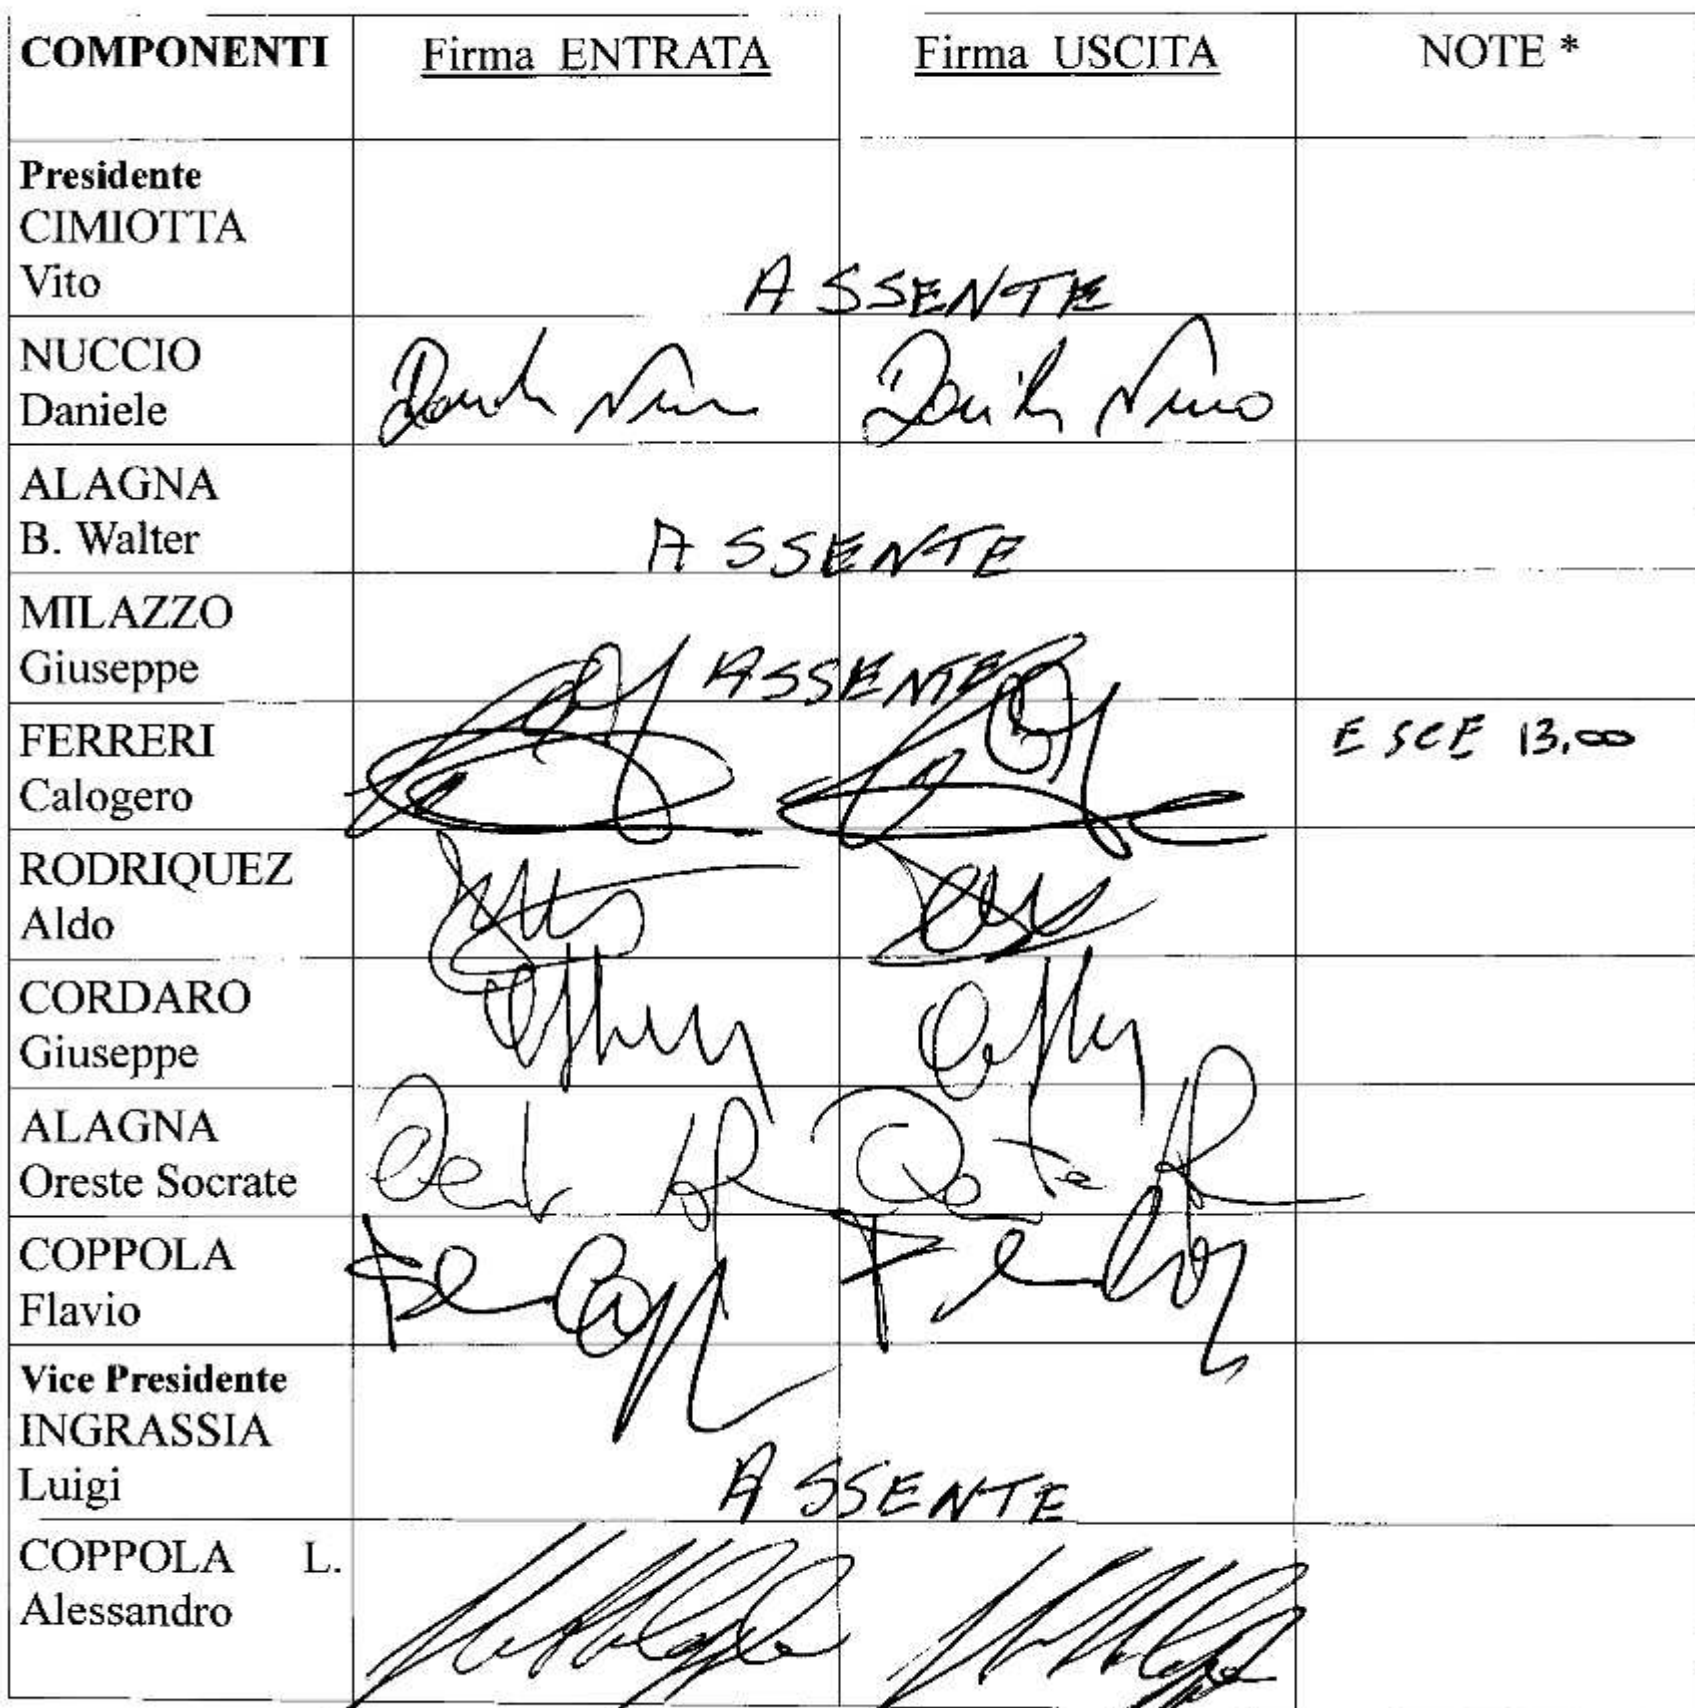 COMPONENTI Firma ENTRATA Firma USCITA NOTE *
Presidente
CIMIOTTA
Vito
ASSENTE
NUCCIO
Daniele
ALAGNA
B. Walter
ASSENTE
MILAZZO
Giuseppe
ASSENTE
FERRERI
Calogero
ESCE 13,00
RODRIQUEZ
Aldo
CORDARO
Giuseppe
ALAGNA
Oreste Socrate
COPPOLA
Flavio
Vice Presidente
INGRASSIA
Luigi
ASSENTE
COPPOLA L.
Alessandro